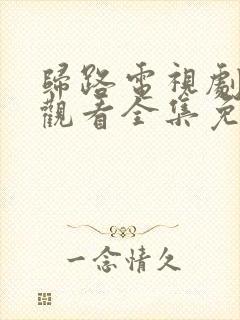 歸路電視劇
觀看全集免
一念情久